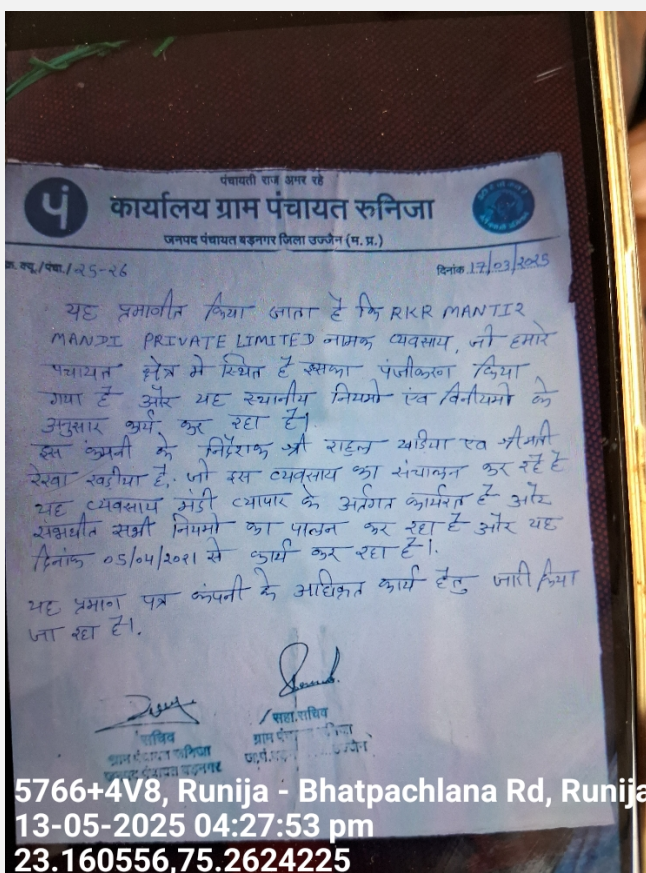 पंचायती राज अमर रहे
पं
कार्यालय ग्राम पंचायत रुनिजा
जनपद पंचायत बड़नगर जिला उज्जैन (म. प्र.)
क्र. क्यू./पंचा./२५-२६
दिनांक 17/03/2025
यह प्रमाणीत किया जाता है कि RKR MANTIR
MANDI PRIVATE LIMITED नामक व्यवसाय, जो हमारे
पंचायत क्षेत्र मे स्थित है इसका पंजीकरण किया
गया है और यह स्थानीय नियमो एंव विनीयमो के
अनुसार कार्य कर रहा है।
इस कंपनी के निर्देशक श्री राहुल खडिया एव श्रीमती
रेखा खडीया है, जो इस व्यवसाय का संचालन कर रहे है
यह व्यवसाय मंडी व्यापार के अर्तगत कार्यरत है और
सभी नियमो का पालन कर रहा है और यह
दिनांक 05/04/2021 से कार्य कर रहा है।
यह प्रमाण पत्र कंपनी के अधिकृत कार्य हेतु जारी किया
जा रहा है।
सचिव
ग्राम पंचायत रुनिजा
जनपद पंचायत बड़नगर
सहा.सचिव
ग्राम
उज्जैन
5766+4V8, Runija - Bhatpachlana Rd, Runija
13-05-2025 04:27:53 pm
23.160556,75.2624225